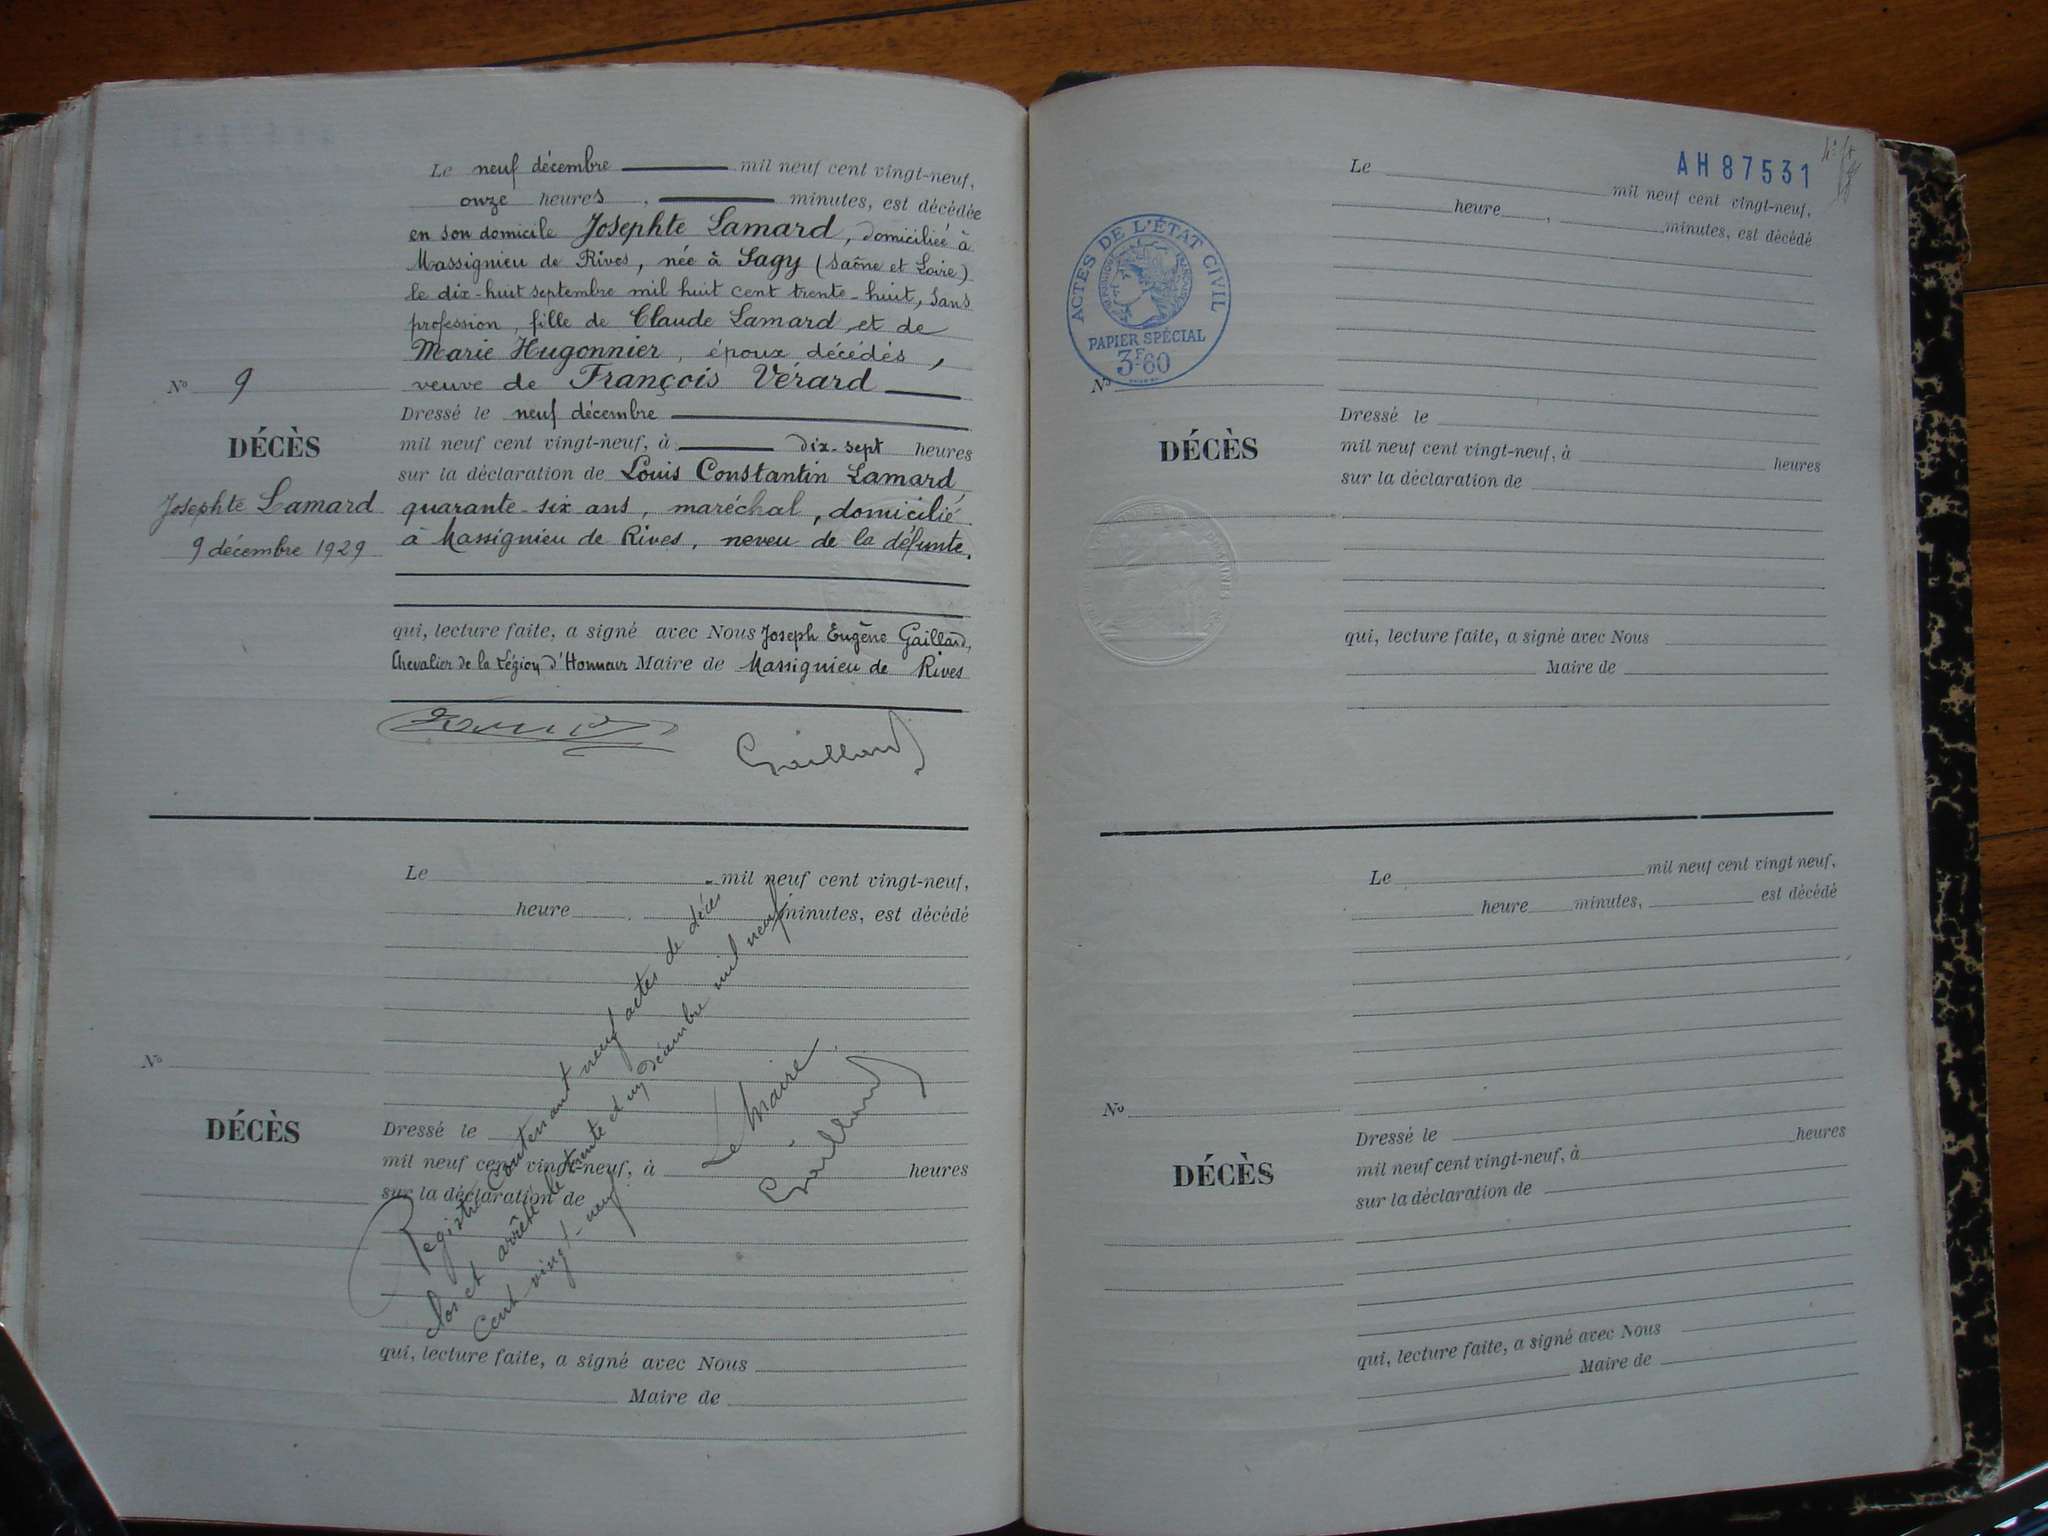 Le neuf décembre mil neuf cent vingt-neuf,
onze heures, minutes, est décédée
en son domicile Josephte Lamard, domiciliée à
Massignieu de Rives, née à Sagy (Saône et Loire)
le dix-huit septembre mil huit cent trente-huit, sans
profession, fille de Claude Lamard et de
Marie Hugonnier, époux décédés,
veuve de François Vérard
No 9
DÉCÈS
Josephte Lamard
9 décembre 1929
Dressé le neuf décembre
mil neuf cent vingt-neuf, à dix-sept heures
sur la déclaration de Louis Constantin Lamard,
quarante-six ans, maréchal, domicilié
à Massignieu de Rives, neveu de la défunte.
qui, lecture faite, a signé avec Nous Joseph Eugène Gaillard,
Chevalier de la Légion d'Honneur Maire de Massignieu de Rives
Gaillard
Le mil neuf cent vingt-neuf,
heure , minutes, est décédé
No
DÉCÈS
Dressé le
mil neuf cent vingt-neuf, à heures
sur la déclaration de
qui, lecture faite, a signé avec Nous
Maire de
Registre contenant neuf actes de décès
clos et arrêté le trente et un décembre mil neuf
cent vingt-neuf
Le Maire
Gaillard
AH 87531
Le mil neuf cent vingt-neuf,
heure , minutes, est décédé
ACTES DE L'ÉTAT CIVIL
RÉPUBLIQUE FRANÇAISE
PAPIER SPÉCIAL
3F60
No
DÉCÈS
Dressé le
mil neuf cent vingt-neuf, à heures
sur la déclaration de
qui, lecture faite, a signé avec Nous
Maire de
Le mil neuf cent vingt neuf,
heure minutes, est décédé
No
DÉCÈS
Dressé le
mil neuf cent vingt-neuf, à heures
sur la déclaration de
qui, lecture faite, a signé avec Nous
Maire de